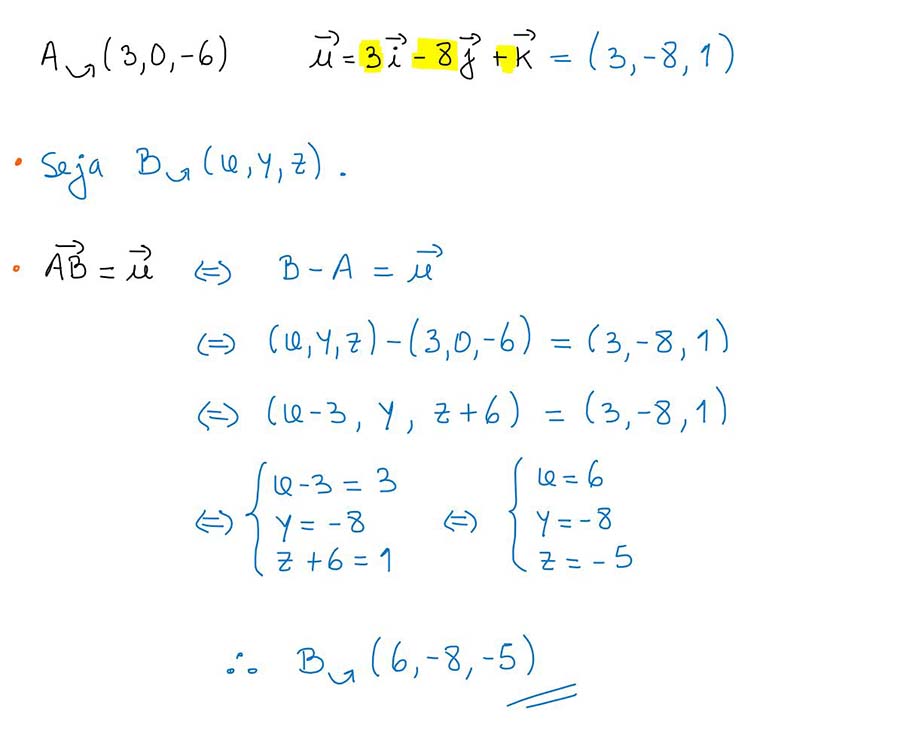 A↝(3,0,-6) u⃗ = 3i⃗ - 8j⃗ + k⃗ = (3,-8,1)
• Seja B↝(x,y,z).
• AB⃗ = u⃗ ⇔ B - A = u⃗
⇔ (x,y,z) - (3,0,-6) = (3,-8,1)
⇔ (x-3, y, z+6) = (3,-8,1)
⇔ { x-3 = 3 ⇔ { x = 6
y = -8 y = -8
z+6 = 1 z = -5
∴ B↝(6,-8,-5)